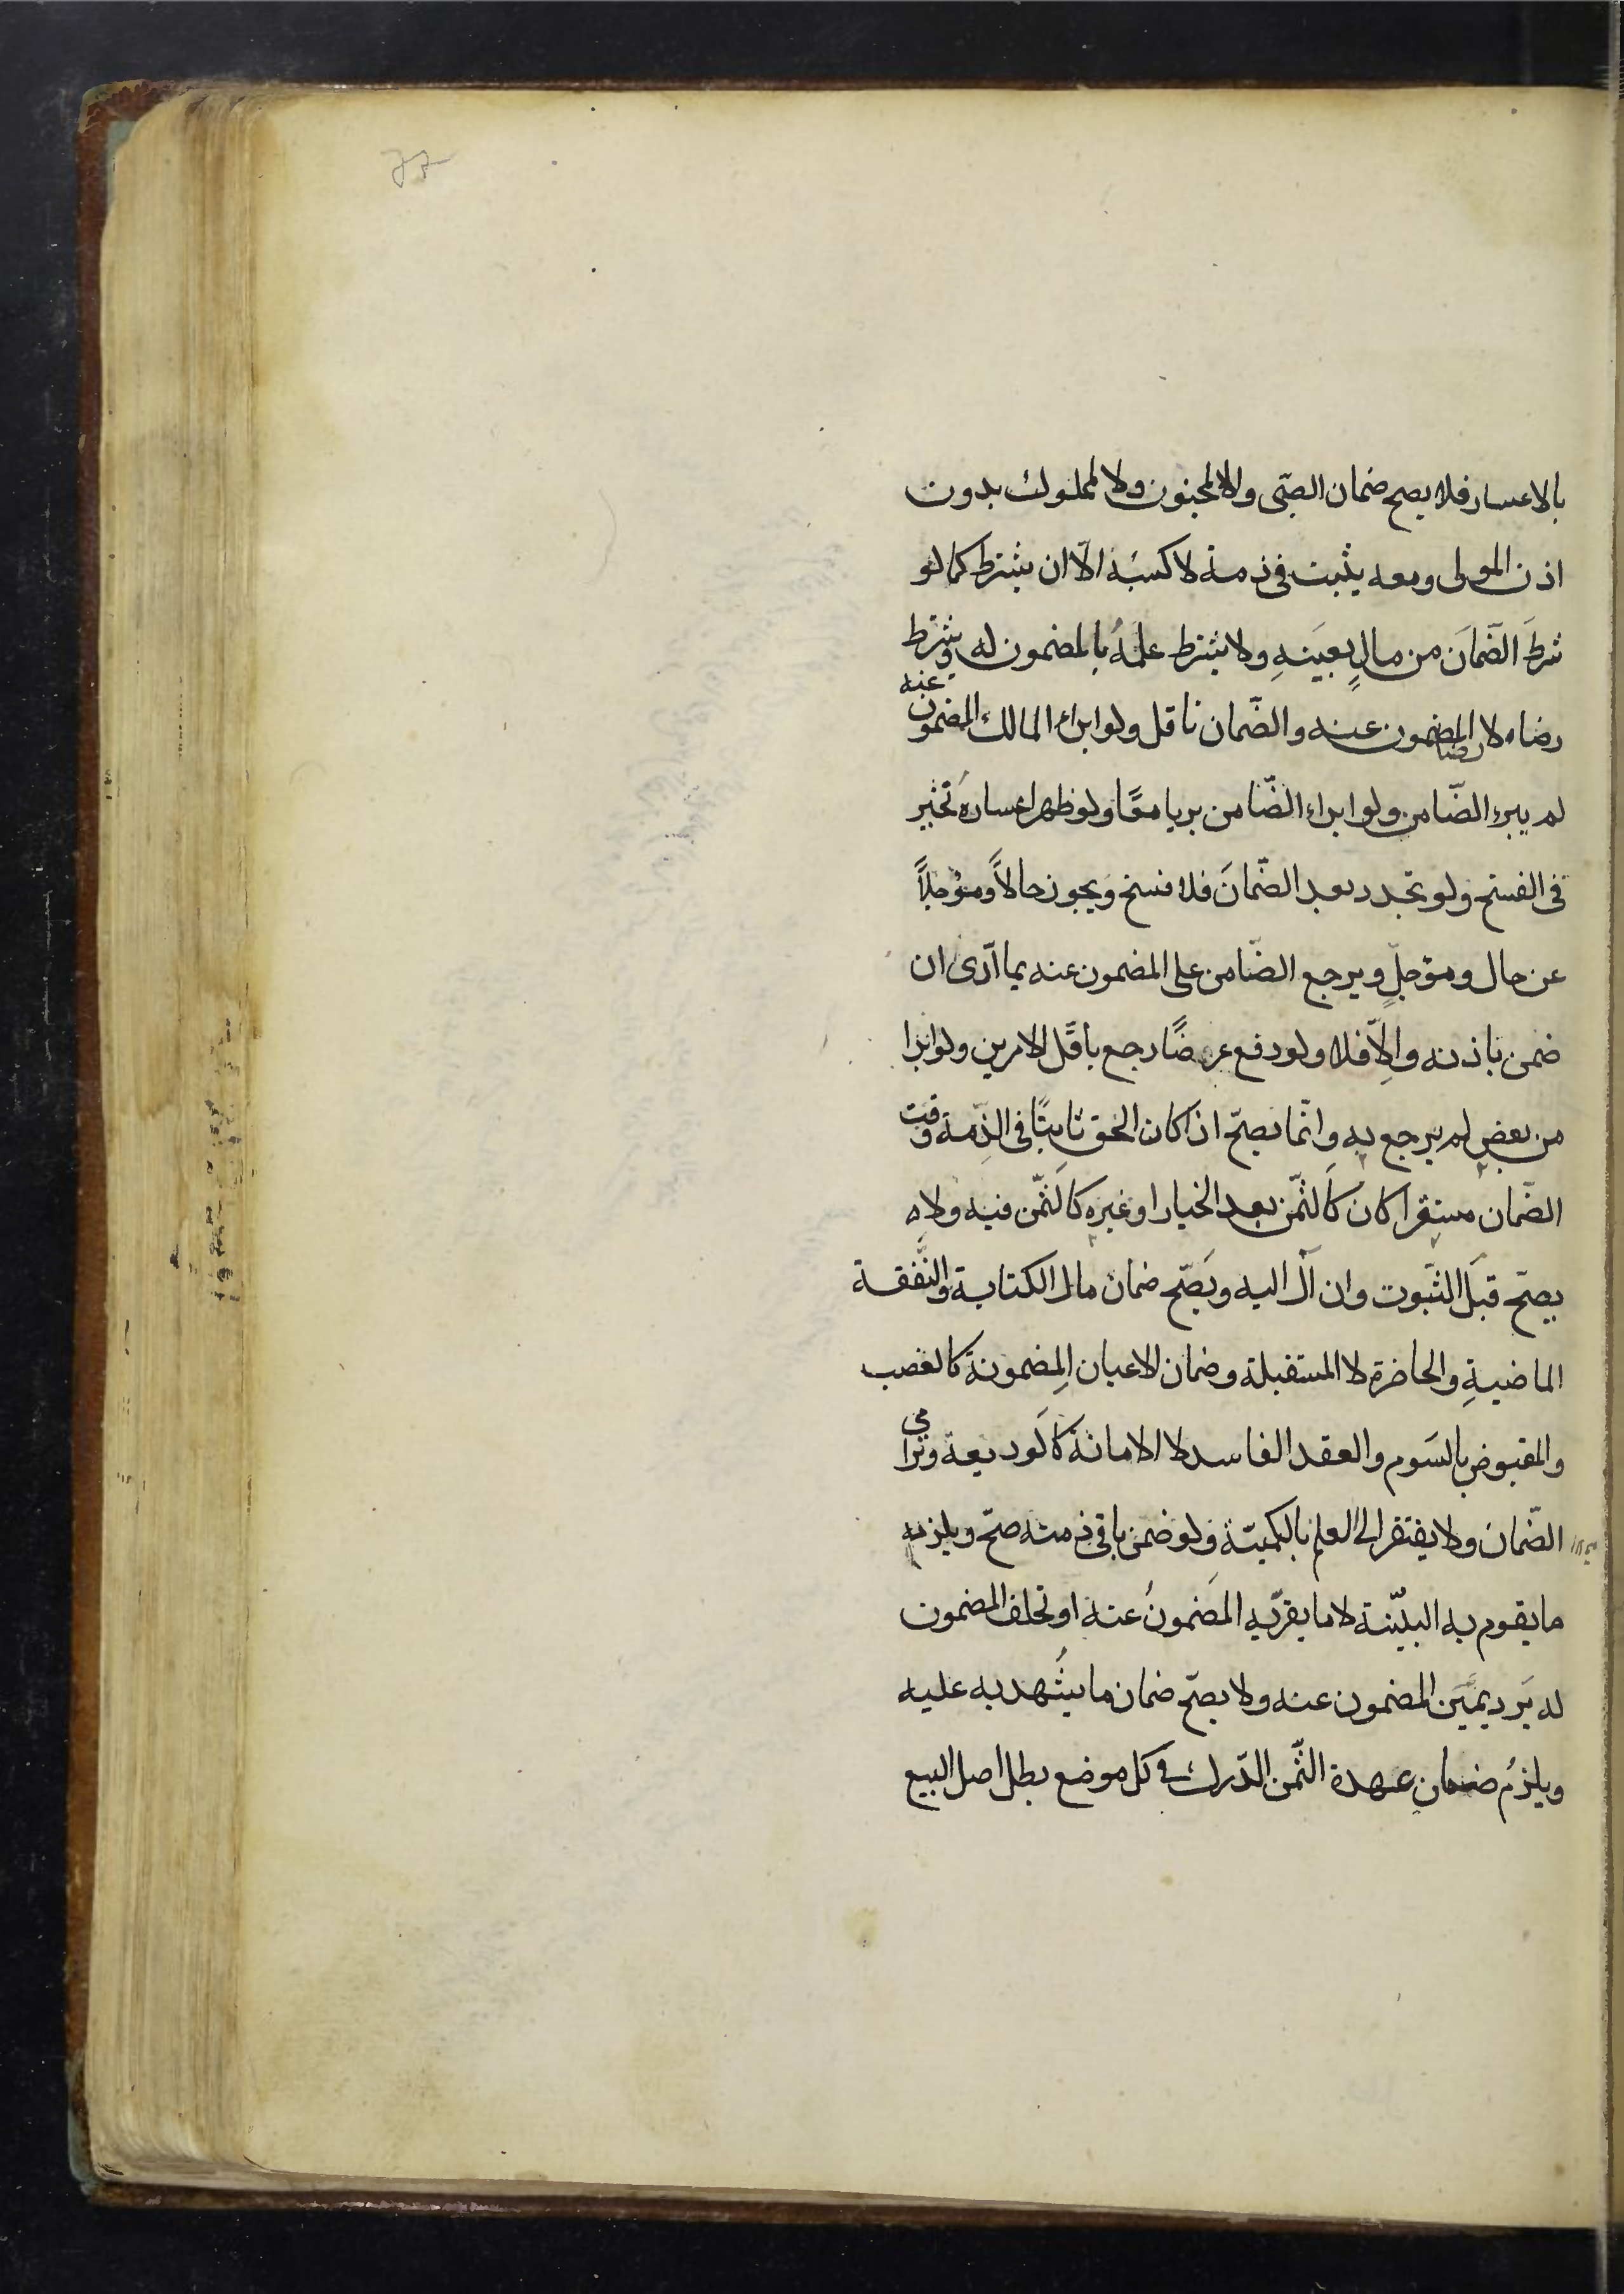 بالاعسار فلا يصح ضمان الصبّى ولا المجنون ولا المملوك بدون
اذن المولى ومعه يثبت فى ذمة لا كسبُه الّا ان يشترط كما لو
شرطَ الضَّمَانَ من مالٍ بعينَهِ ولا يشترط علمهُ بالمضمون له ويشترط
رضاه لا رضا المضمون عنه والضّمان ناقل ولو ابراء المالك المضمون عنه
لم يبرء الضّامن ولو ابراء الضّامن بريا معًا ولو ظهر اعسارهُ تخيّر
فى الفسخ ولو تجدد بعد الضّمانَ فلا فسخ ويجوز حالاًّ ومؤجلاً
عن حال ومؤجلٍّ ويرجع الضّامن على المضمون عنه بما ادّى ان
ضمن باذنه والِاّ فلا ولو دفع عرضًا رجع باقَل الامرين ولو ابرا
من بعضٍ لم يرجع بهِ وانّما يصحّ اذا كان الحق ثابتًا فى الذِّمة وقت
الضّمان مستقرا كان كالثمّن بعد الخيار او غيره كالثمّن فيه ولا
يصحّ قبَل الثبّوت وان آل اليه ويَصّح ضمان مال الكتابة والنّفقة
الماضيةِ والحاضرة لا المستقبلة وضمان الاعيان المضمونة كالغصب
والمقبوض بالسَوم والعقد الفاسد لا الامانة كالوديعة وترامى
الضّمان ولا يفتقر الى العلم بالكميّة ولو ضمن ما فى ذمته صحّ ويلزمه
ما يقوم به البيّنة لا ما يقرّ به المَضمونُ عنه او تحلف المضمون
له بَرد يميَن المضمون عنه ولا يصحّ ضمان ما يشُهد به عليه
ويلزمُ ضمان عهدة الثّمن الدّرك فى كل موضع بطل اصل البيع